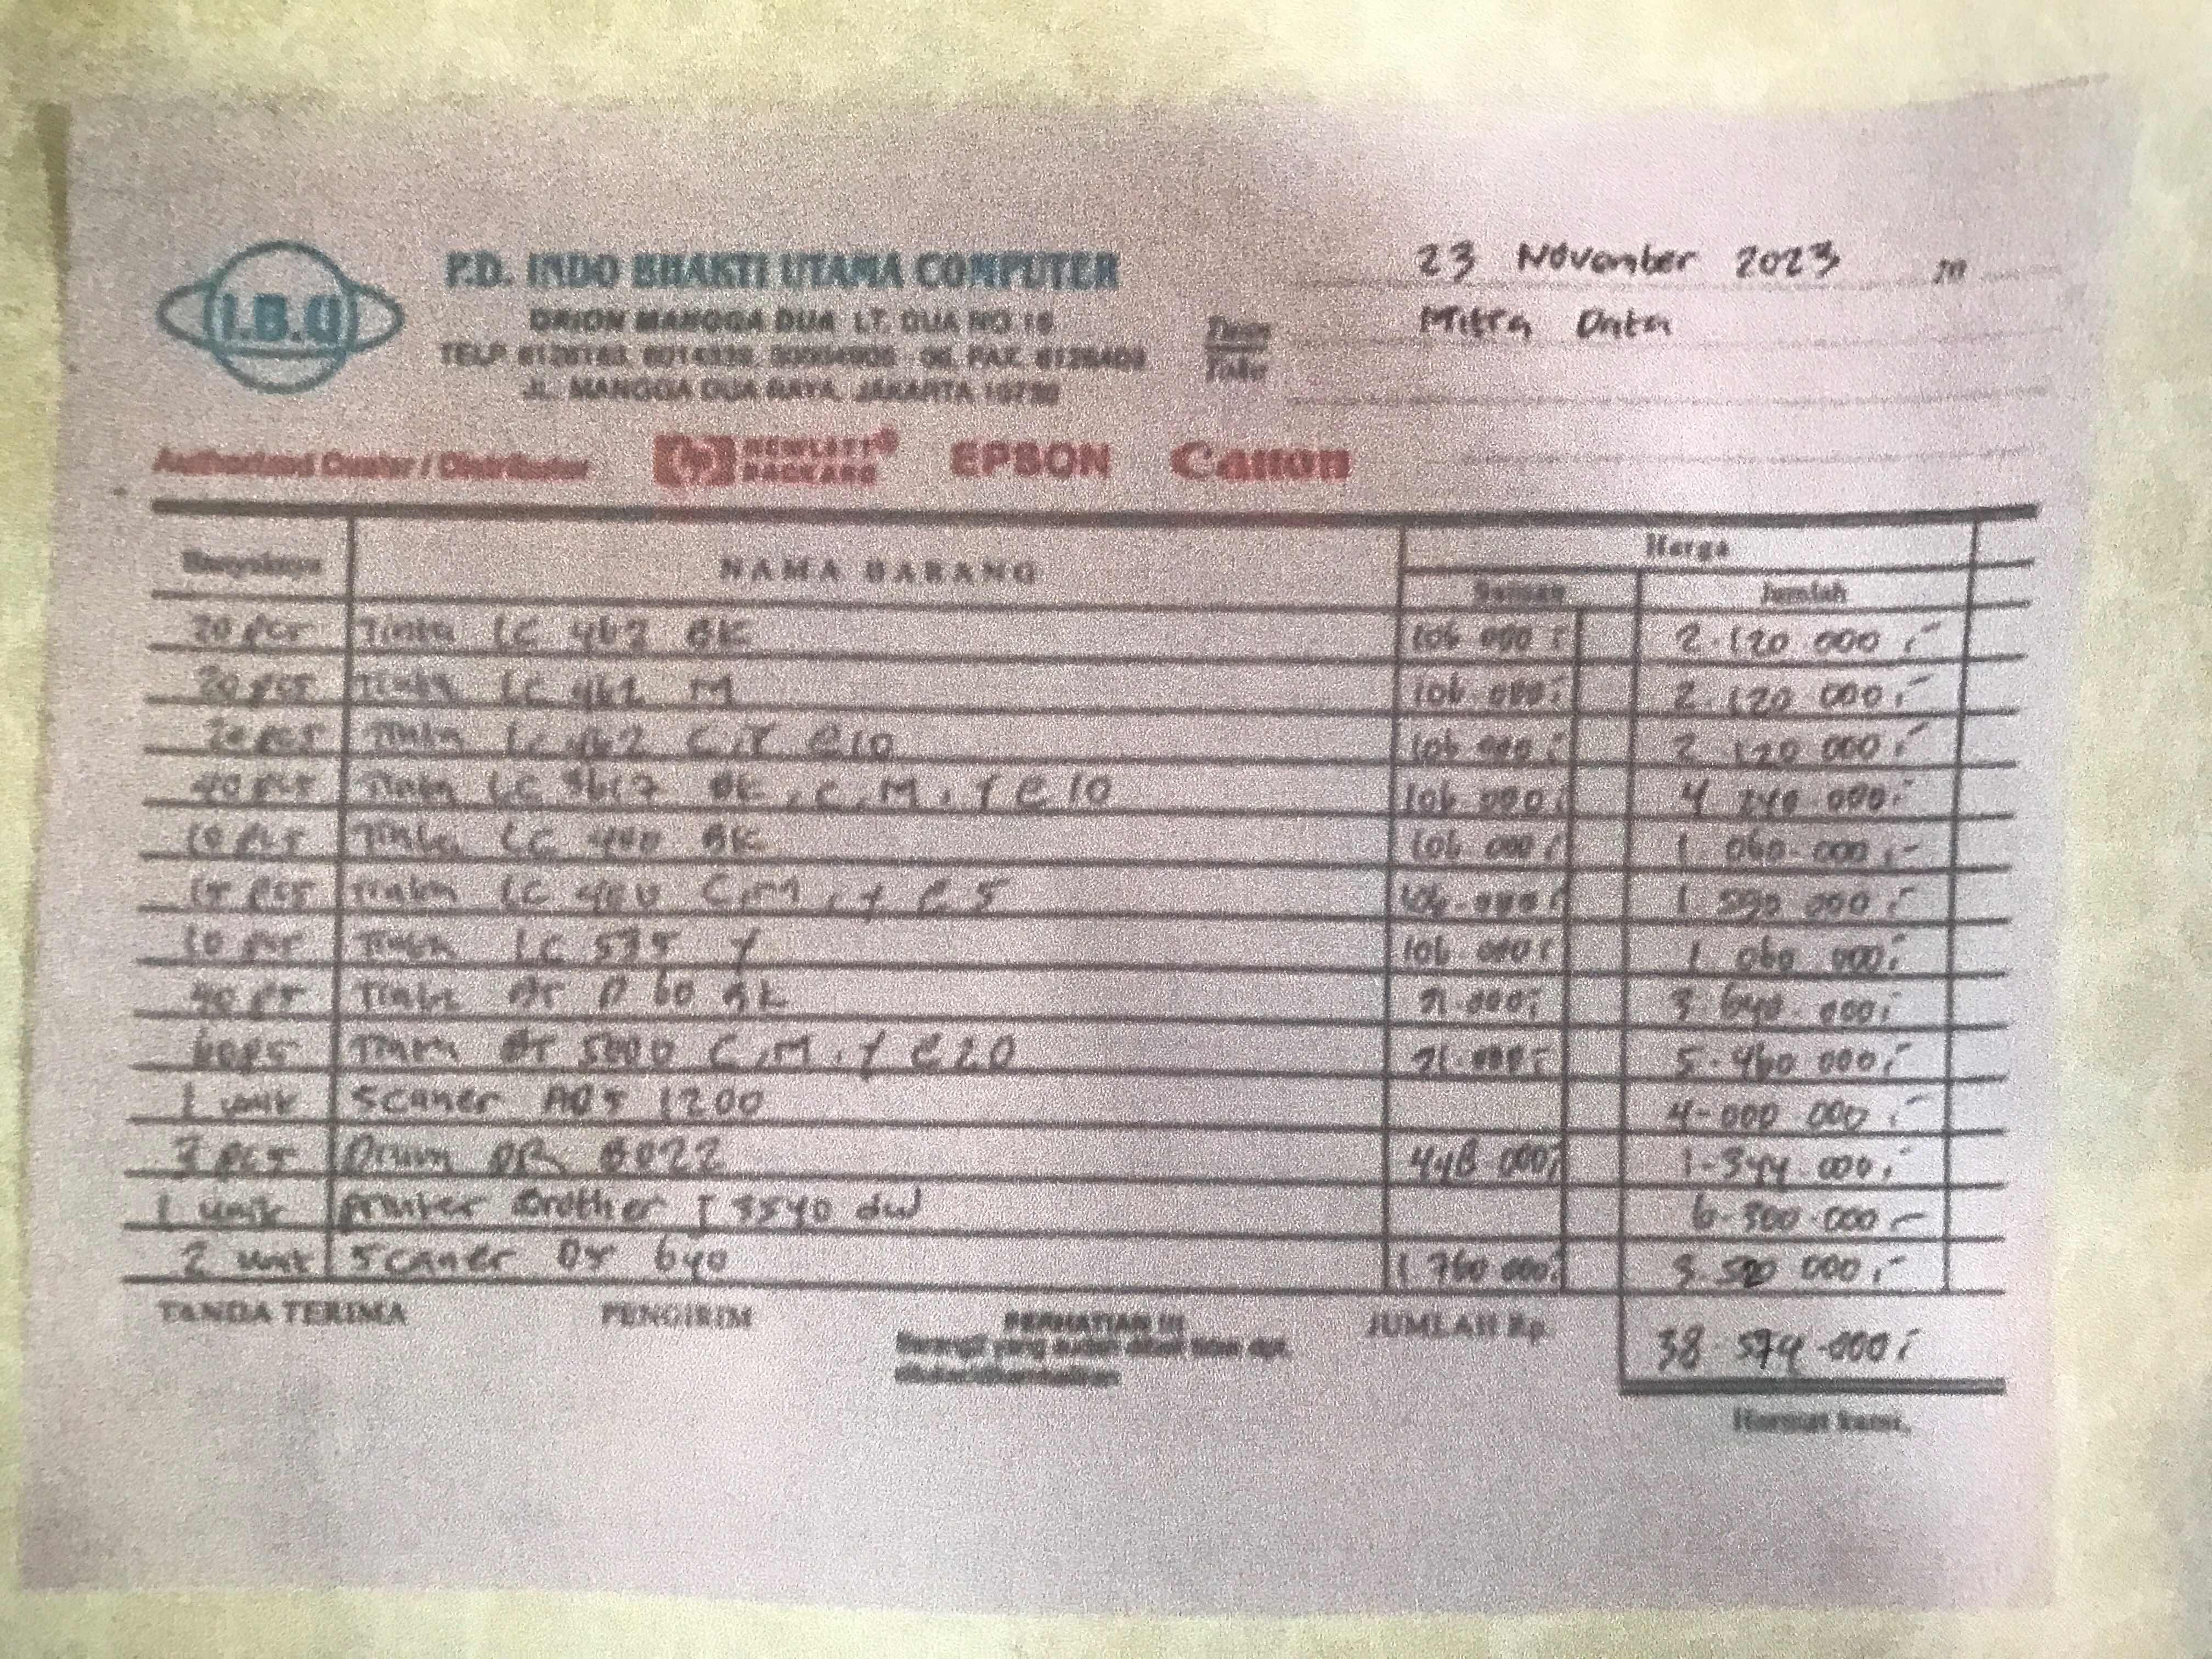 I.B.U
P.D. INDO BHAKTI UTAMA COMPUTER
ORION MANGGA DUA LT. DUA NO 16
TELP. FAX.
JL. MANGGA DUA RAYA, JAKARTA 10730
23 November 2023 20
Tuan
Toko
Mitra Data
Authorized Dealer / Distributor
hp HEWLETT® PACKARD EPSON Canon
Banyaknya NAMA BARANG Harga
Satuan Jumlah
20 pcs Tinta LC 462 BK 106.000,- 2.120.000,-
20 pcs Tinta LC 462 M 106.000,- 2.120.000,-
20 pcs Tinta LC 462 C,Y @10 106.000,- 2.120.000,-
40 pcs Tinta LC 3617 BK, C, M, Y @10 106.000,- 4.240.000,-
10 pcs Tinta LC BK 106.000,- 1.060.000,-
15 pcs Tinta LC C, M, Y @5 106.000,- 1.590.000,-
10 pcs Tinta LC 535 Y 106.000,- 1.060.000,-
40 pcs Tinta BT D 60 BK 91.000,- 3.640.000,-
60 pcs Tinta BT 5000 C, M, Y @20 91.000,- 5.460.000,-
1 unit Scaner ADS 1200 4.000.000,-
3 pcs Drum DR 448.000,- 1.344.000,-
1 unit printer Brother J 3540 dw 6.300.000,-
2 unit Scaner DS 640 1.760.000,- 3.520.000,-
TANDA TERIMA PENGIRIM PERHATIAN !!! JUMLAH Rp. 38.574.000,-
Barang2 yang sudah dibeli tidak dpt.
ditukar/dikembalikan
Hormat kami,